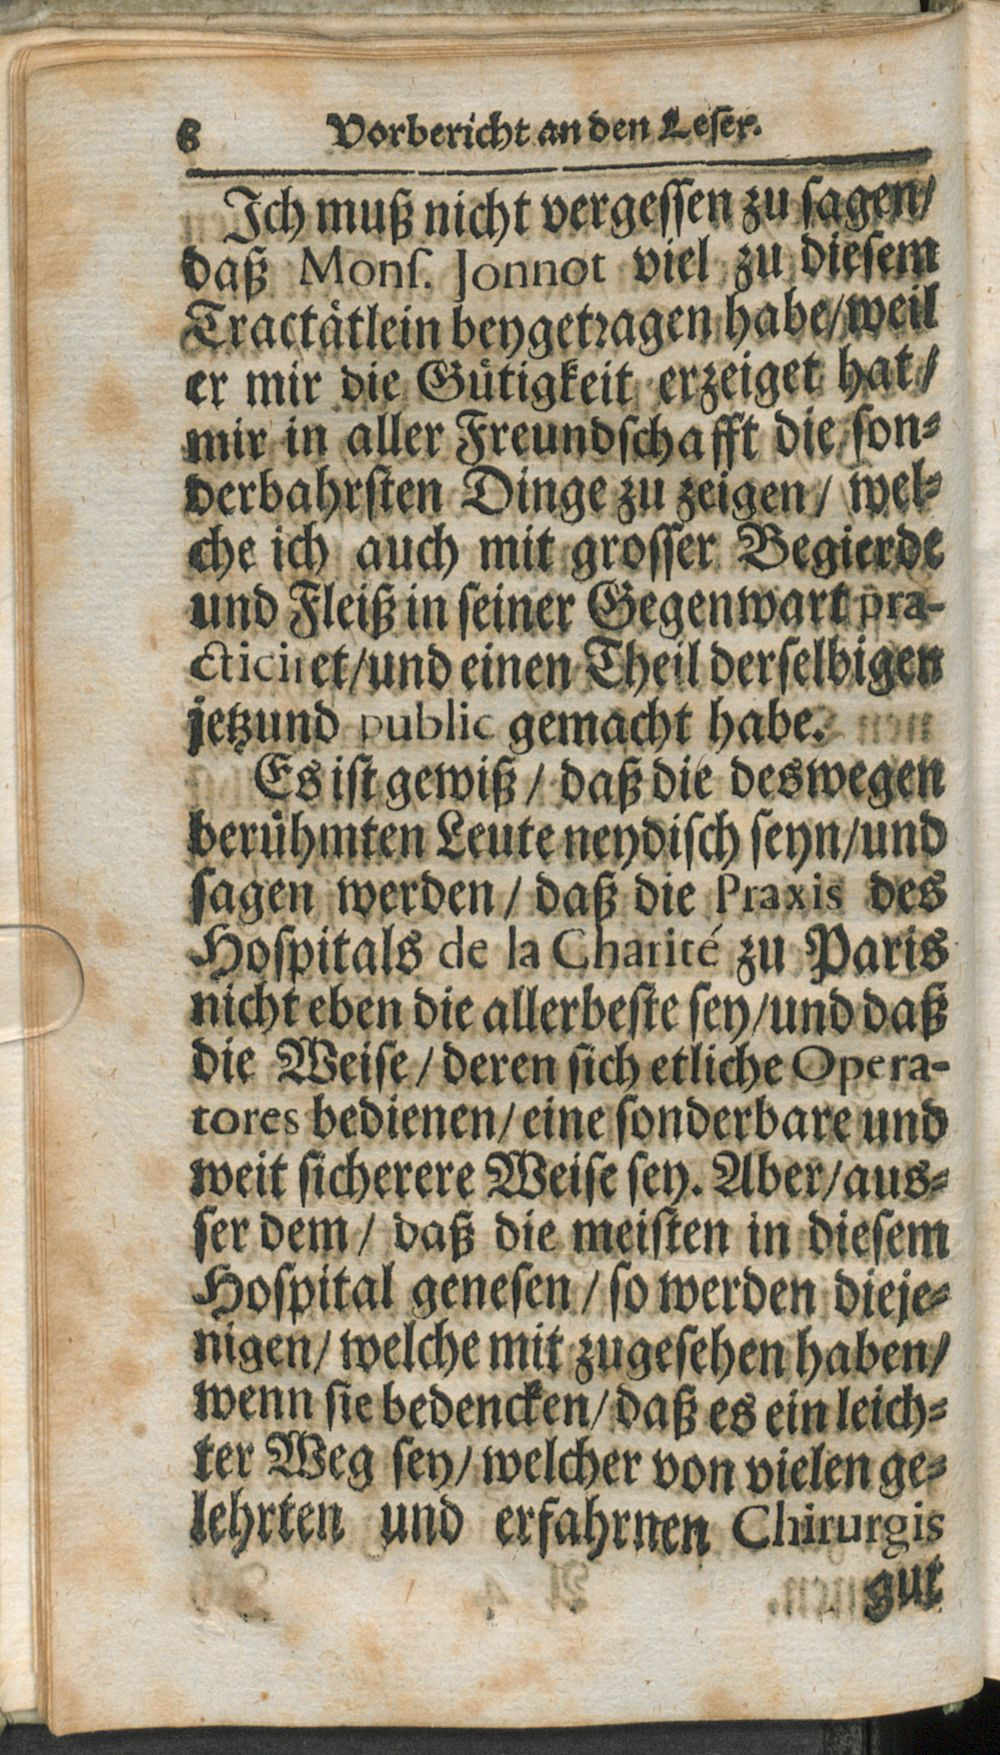 8 Vorbericht an den Leser.
Ich muß nicht vergessen zu sagen/
daß Mons. Jonnot viel zu diesem
Tractätlein beygetragen habe/weil
er mir die Gütigkeit erzeiget hat/
mir in aller Freundschafft die son-
derbahrsten Dinge zu zeigen/ wel-
che ich auch mit grosser Begierde
und Fleiß in seiner Gegenwart pra-
cticiret/und einen Theil derselbigen
jetzund public gemacht habe.
Es ist gewiß/ daß die deswegen
berühmten Leute neydisch seyn/und
sagen werden/ daß die Praxis des
Hospitals de la Charité zu Paris
nicht eben die allerbeste sey/und daß
die Weise/ deren sich etliche Opera-
tores bedienen/ eine sonderbare und
weit sicherere Weise sey. Aber/aus-
ser dem/ daß die meisten in diesem
Hospital genesen/ so werden dieje-
nigen/ welche mit zugesehen haben/
wenn sie bedencken/ daß es ein leich-
ter Weg sey/ welcher von vielen ge-
lehrten und erfahrnen Chirurgis
gut